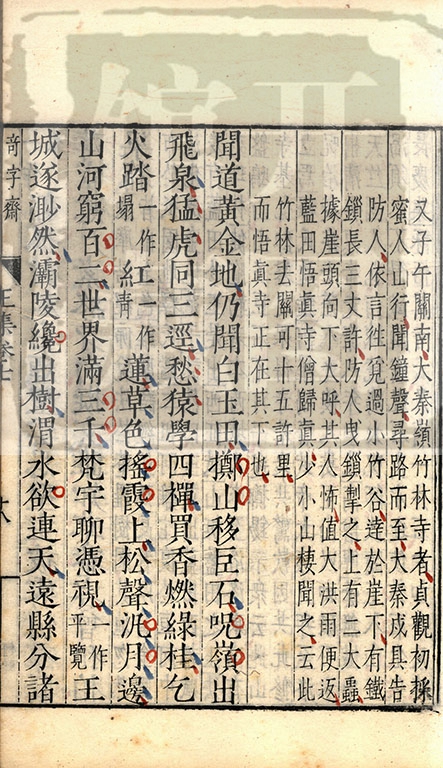 又子午關南大秦嶺竹林寺者貞觀初採
蜜人山行聞鐘聲尋路而至大秦戍具告
防人依言往覓過小竹谷達於崖下有鐵
鎖長三丈許防人曳鎖掣之上有二大蟲
據崖頭向下大呼其人怖值大洪雨便返
藍田悟真寺僧歸真少小山棲聞之云此
竹林去關可十五許里
而悟真寺正在其下也
聞道黃金地仍聞白玉田擲山移巨石呪嶺出
飛泉猛虎同三逕愁猿學四禪買香燃綠桂乞
火踏一作塌紅一作青蓮草色搖霞上松聲汎月邊
山河窮百二世界滿三千梵宇聊憑視一作平覽王
城遂渺然灞陵纔出樹渭水欲連天遠縣分諸
奇字齋